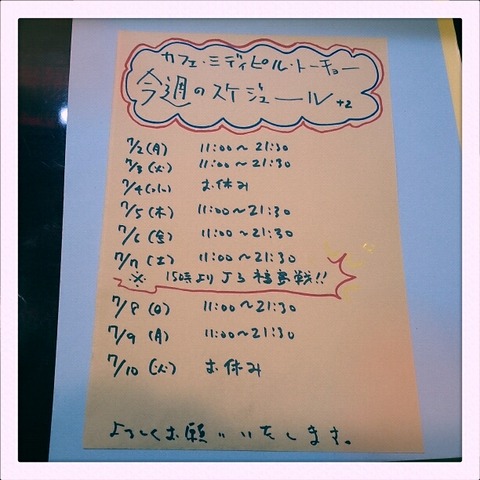 カフェ・ミディピル・トーキョー
今週のスケジュール +2
7/2(月) 11:00〜21:30
7/3(火) 11:00〜21:30
7/4(水) お休み
7/5(木) 11:00〜21:30
7/6(金) 11:00〜21:30
7/7(土) 11:00〜21:30
※ 15時より J3 福島戦!!
7/8(日) 11:00〜21:30
7/9(月) 11:00〜21:30
7/10(火) お休み
よろしくお願いいたします。